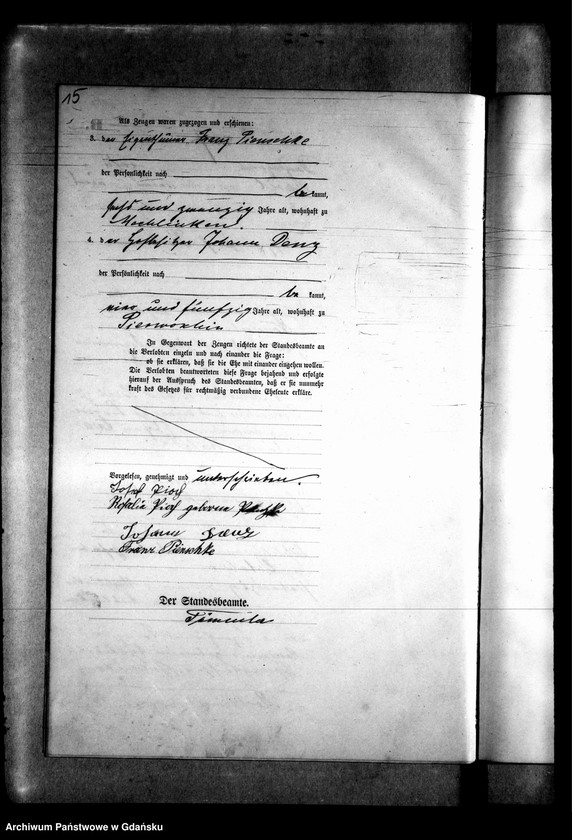 15
Als Zeugen waren zugezogen und erschienen:
3. der Eigenthümer Franz Pienschke
der Persönlichkeit nach
be kannt,
sechs und zwanzig Jahre alt, wohnhaft zu
Mechlinken.
4. der Hofbesitzer Johann Denz
der Persönlichkeit nach
be kannt,
vier und fünfzig Jahre alt, wohnhaft zu
Pierwoschin
In Gegenwart der Zeugen richtete der Standesbeamte an
die Verlobten einzeln und nach einander die Frage:
ob sie erklären, daß sie die Ehe mit einander eingehen wollen.
Die Verlobten beantworteten diese Frage bejahend und erfolgte
hierauf der Ausspruch des Standesbeamten, daß er sie nunmehr
kraft des Gesetzes für rechtmäßig verbundene Eheleute erkläre.
Vorgelesen, genehmigt und unterschrieben.
Josef Pioch
Rosalie Pioch geborene
Johann Denz
Franz Pienschke
Der Standesbeamte.
Archiwum Państwowe w Gdańsku